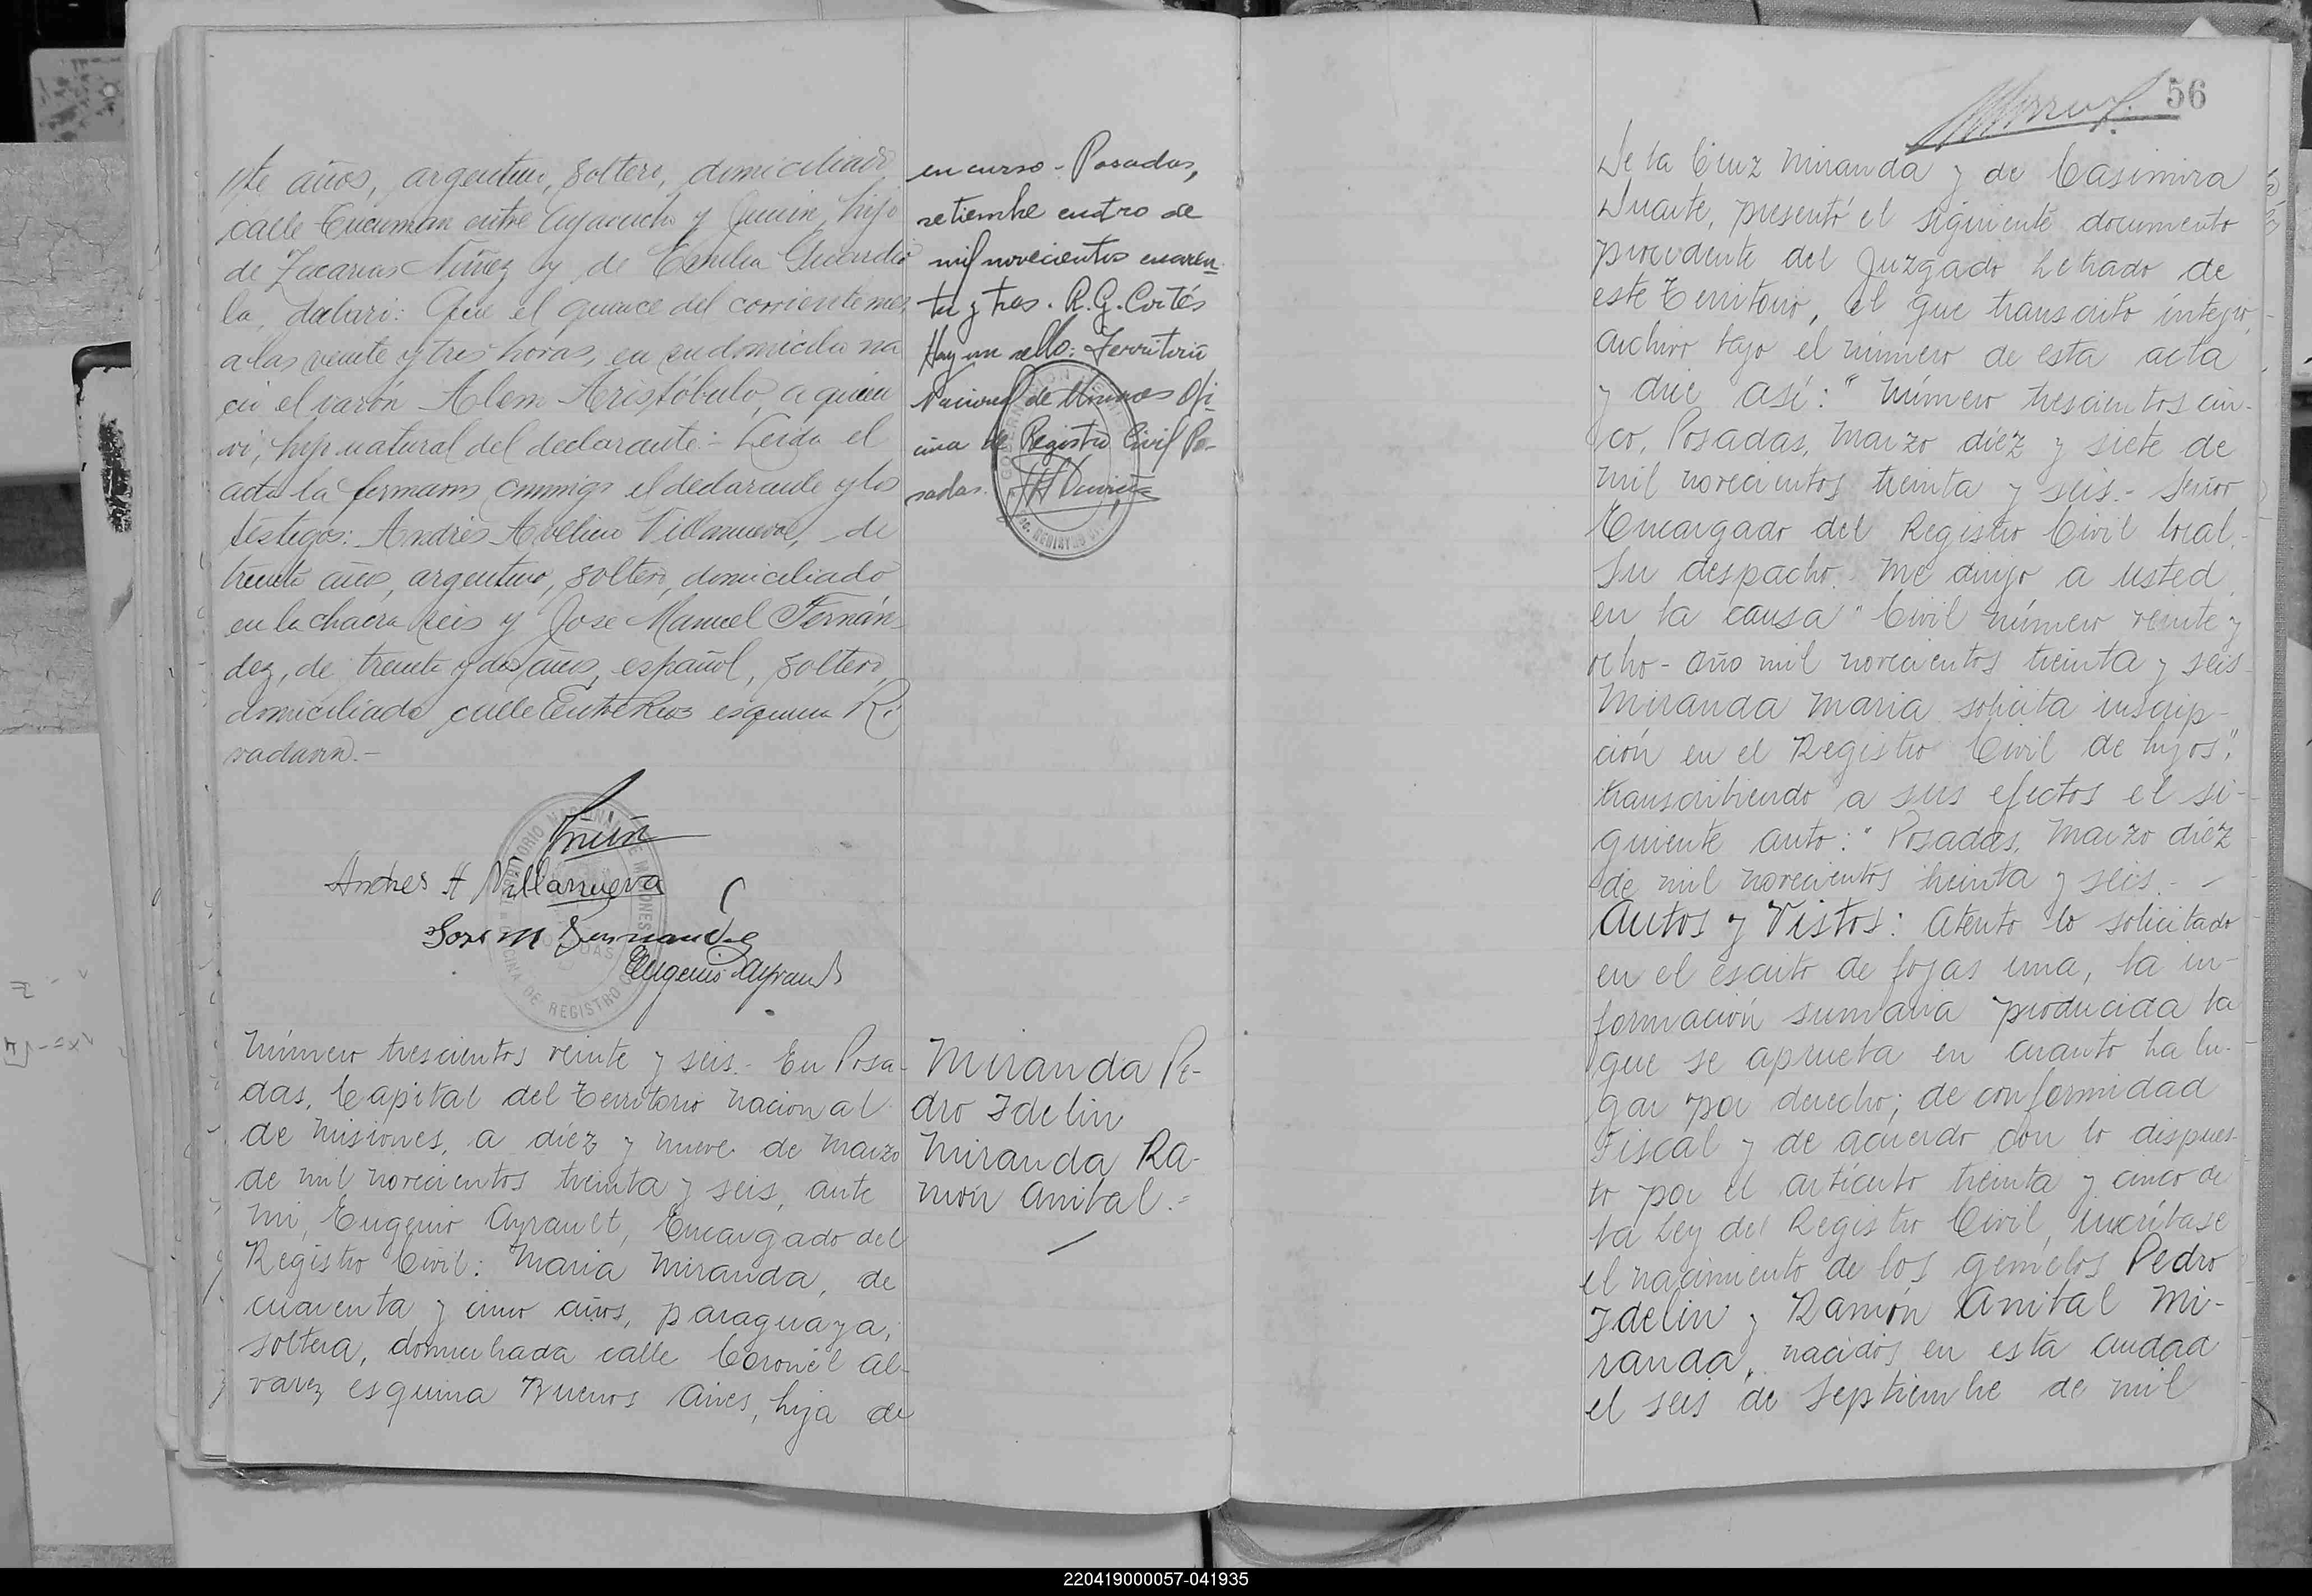 años, argentino, soltero, domiciliado
calle Tucuman entre Ayacucho y Junin, hijo
de Zacarias Nuñez y de Emilia Guardio
la, declaró: Que el quince del corriente mes,
a las veinte y tres horas, en su domicilio na
ció el varón Alem Aristóbulo, a quien
vi, hijo natural del declarante:- Leida el
acta la firmaron conmigo el declarante y los
testigos: Andrés Avelino Villanueva, de
treinta años, argentino, soltero, domiciliado
en la chacra seis y José Manuel Fernán-
dez, de treinta y dos años, español, soltero,
domiciliado calle Entre Rios esquina Ri
vadavia.-
Andres A Villanueva
Jose M Fernandez
Eugenio Ayrault
TERRITORIO NACIONAL DE MISIONES
OFICINA DE REGISTRO
Número trescientos veinte y seis.- En Posa-
das, Capital del Territorio Nacional
de Misiones, a diéz y nueve de Marzo
de mil novecientos treinta y seis, ante
mi, Eugenio Ayrault, Encargado del
Registro Civil: Maria Miranda, de
cuarenta y cinco años, paraguaya,
soltera, domiciliada calle Coronél Al-
varez esquina Buenos Aires, hija de
en curso - Posadas,
setiembre cuatro de
mil novecientos cuaren-
ta y tres. R.G. Cortés
Hay un sello: Territorio
Nacional de Misiones Ofi-
cina de Registro Civil Po-
sadas.
Miranda Pe-
dro Idelin
Miranda Ra-
món Anibal.=
56
De la Cruz Miranda y de Casimira
Duarte, presentó el siguiente documento
procedente del Juzgado Letrado de
este Territorio, el que transcrito íntegro,
archivo bajo el número de esta acta
y dice así: "Número trescientos cin-
co, Posadas, Marzo diéz y siete de
mil novecientos treinta y seis.- Señor
Encargado del Registro Civil local.-
Su despacho. Me dirijo a Usted
en la causa "Civil número veinte y
ocho - año mil novecientos treinta y seis
Miranda Maria solicita inscrip-
ción en el Registro Civil de hijos",
transcribiendo a sus efectos el si-
guiente auto: "Posadas, Marzo diéz
de mil novecientos treinta y seis.-
Autos y Vistos: Atento lo solicitado
en el escrito de fojas una, la in-
formación sumaria producida la
que se aprueba en cuanto ha lu-
gar por derecho; de conformidad
Fiscal y de acuerdo con lo dispues-
to por el artículo treinta y cinco de
la Ley del Registro Civil, inscríbase
el nacimiento de los gemelos Pedro
Idelin y Ramón Anibal Mi-
randa, nacidos en esta ciudad
el seis de Septiembre de mil
220419000057-041935